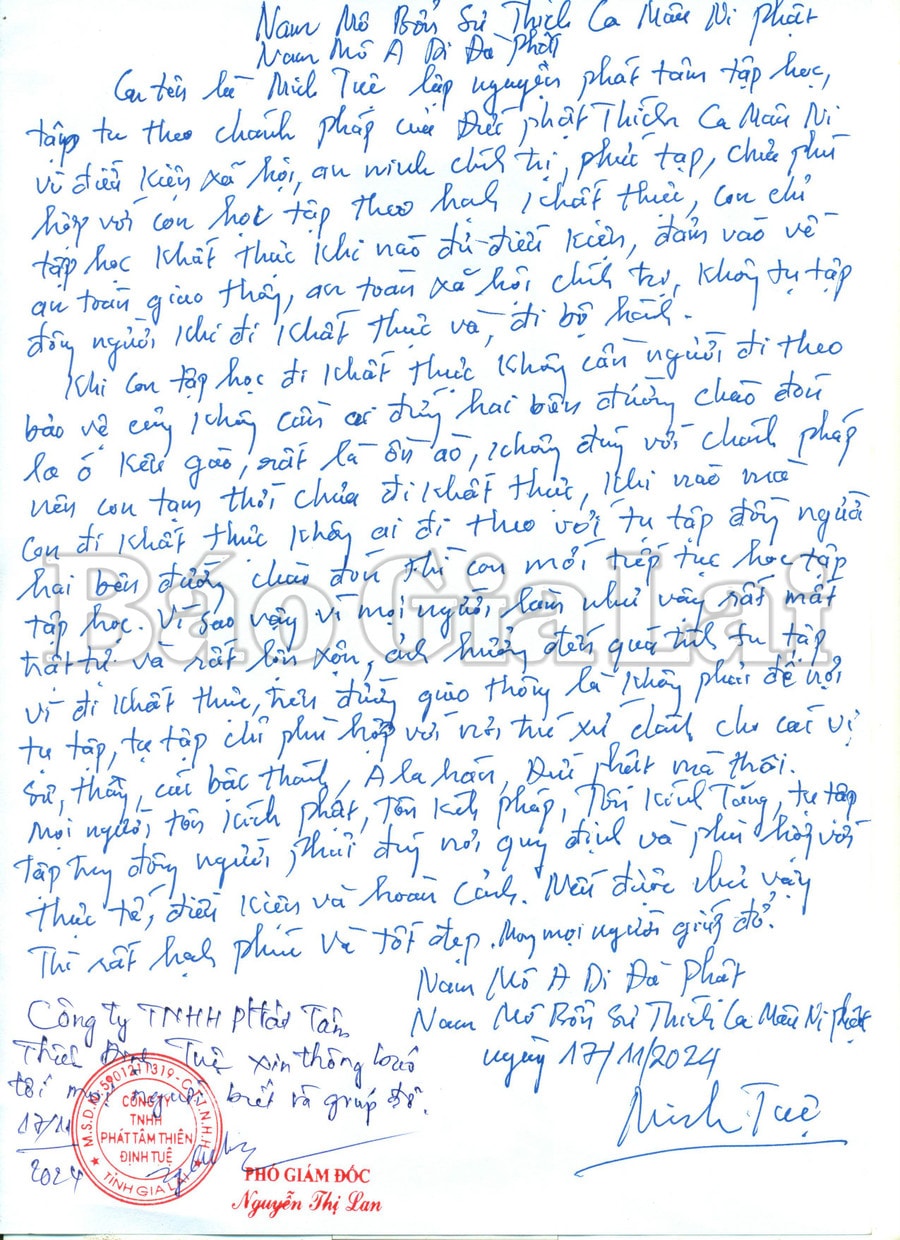 Nam Mô Bổn Sư Thích Ca Mâu Ni Phật
Nam Mô A Di Đà Phật
Con tên là Minh Tuệ lập nguyện phát tâm tập học,
tập tu theo chánh pháp của Đức Phật Thích Ca Mâu Ni
vì điều kiện xã hội, an ninh chính trị, phức tạp, chưa phù
hợp với con học tập theo hạnh khất thực, con chỉ
tập học khất thực khi nào đủ điều kiện, đảm vào về
an toàn giao thông, an toàn xã hội chính trị, không tụ tập
đông người khi đi khất thực và, đi bộ hành.
Khi con tập học đi khất thực không cần người đi theo
bảo vệ cũng không cần ai đứng hai bên đường chào đón
la ó kêu gào, rất là ồn ào, không đúng với chánh pháp
nên con tạm thời chưa đi khất thực, khi nào mà
con đi khất thực không ai đi theo với tụ tập đông người
hai bên đường chào đón thì con mới tiếp tục học tập
tập học. Vì sao vậy vì mọi người làm như vậy rất mất
trật tự và rất lộn xộn, ảnh hưởng đến quá trình tu tập
vì đi khất thực, trên đường giao thông là không phải để nơi
tụ tập, tụ tập chỉ phù hợp với nơi trú xứ dành cho các vị
sư, thầy, các bậc thánh, A la hán, Đức phật mà thôi.
Mọi người, tôn kính phật, Tôn kính pháp, Tôn kính Tăng, tụ tập
tập trung đông người phải đúng nơi quy định và phù hợp với
thực tế, điều kiện và hoàn cảnh. Nếu được như vậy
Thì rất hạnh phúc và tốt đẹp. Mong mọi người giúp đỡ.
Nam Mô A Di Đà Phật
Nam Mô Bổn Sư Thích Ca Mâu Ni phật
ngày 17/11/2024
Minh Tuệ
Công ty TNHH Phát Tâm
Thiền Định Tuệ xin thông báo
tới mọi người biết và giúp đỡ.
17/11
2024
M.S.D.N:5901211319-C.T.T.N.H.H
CÔNG TY
TNHH
PHÁT TÂM THIỀN
ĐỊNH TUỆ
TỈNH GIA LAI
PHÓ GIÁM ĐỐC
Nguyễn Thị Lan
Báo Gia Lai